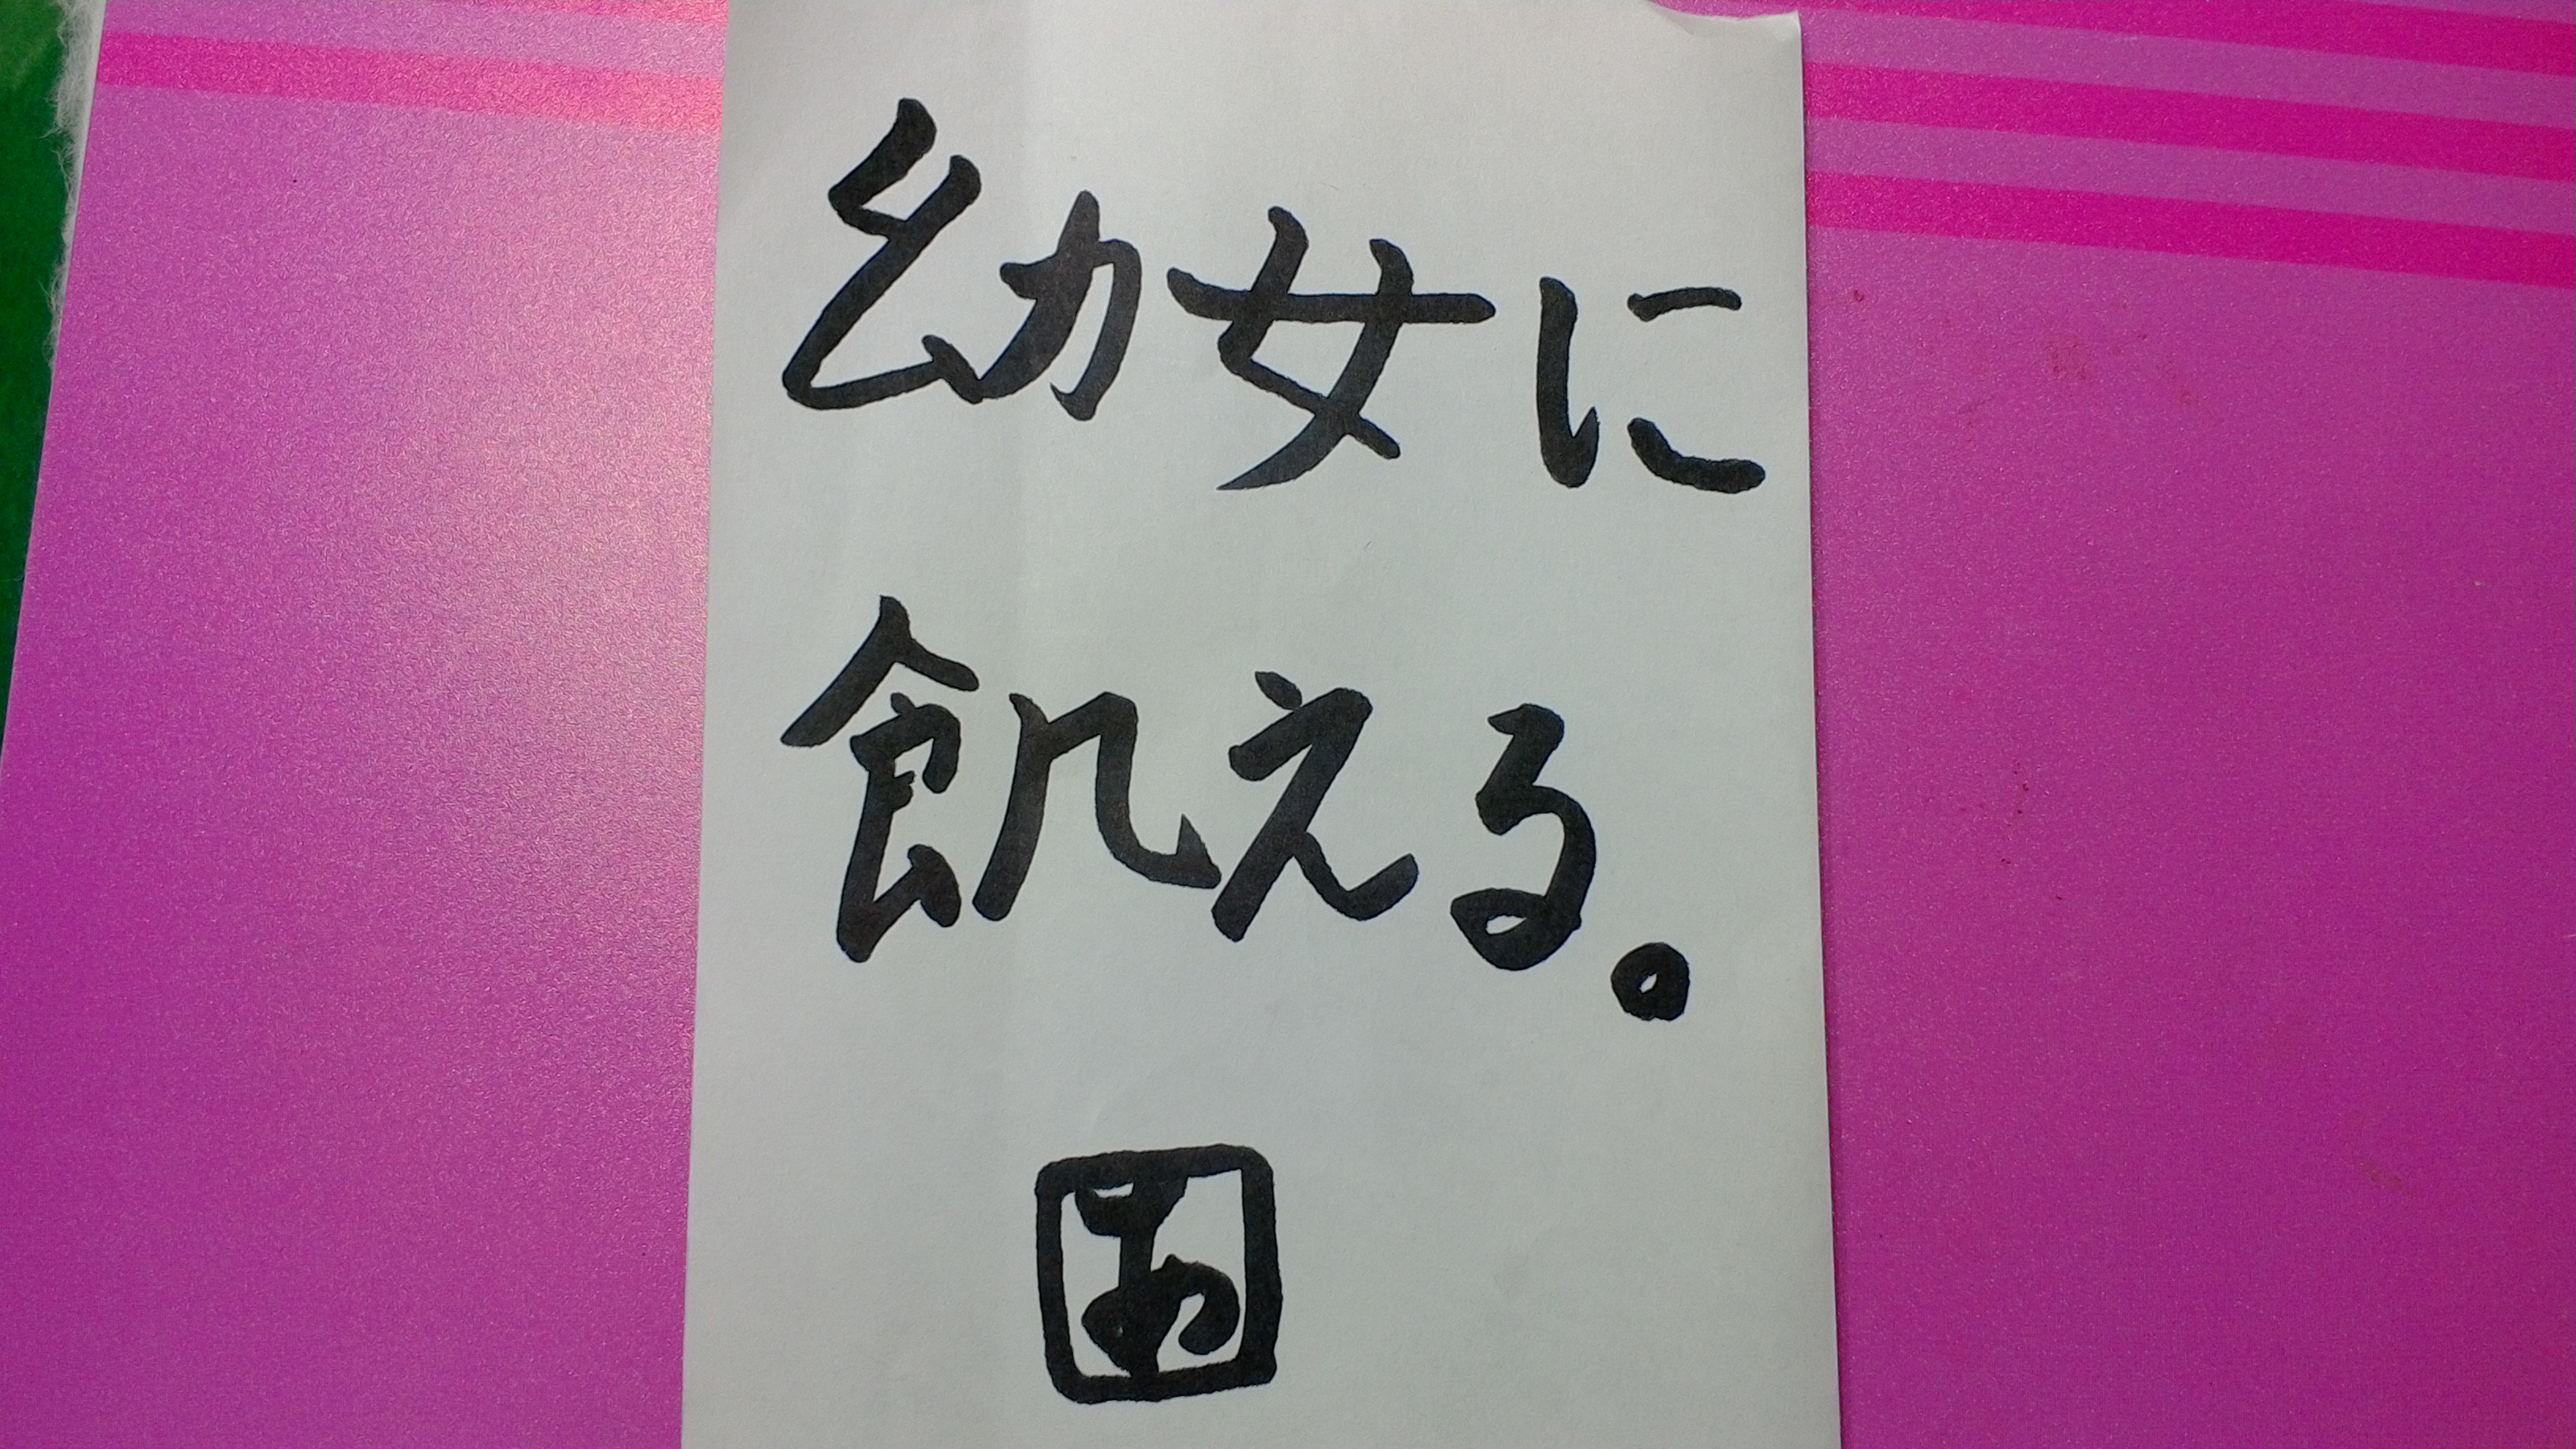 幼女に
飢える。